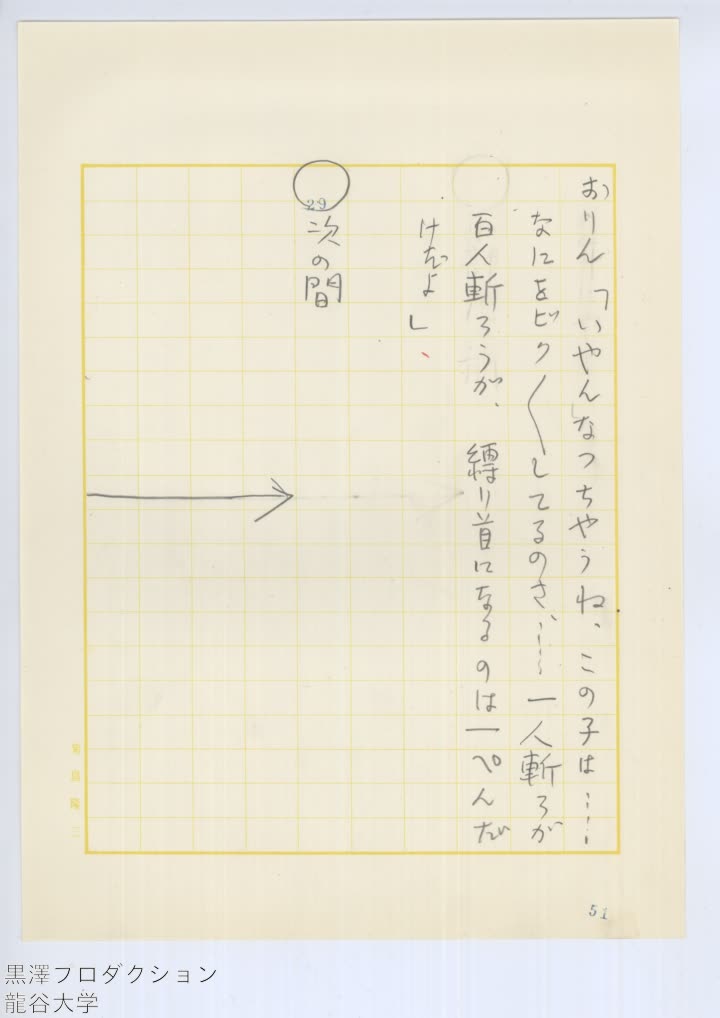 おりん「いやんなつちやうね、この子は……
なにをビク〱してるのさ、……一人斬ろが
百人斬ろうが、縛り首になるのは一ぺんだ
けだよ」
29
次の間
菊島隆三
51
黒澤プロダクション
龍谷大学